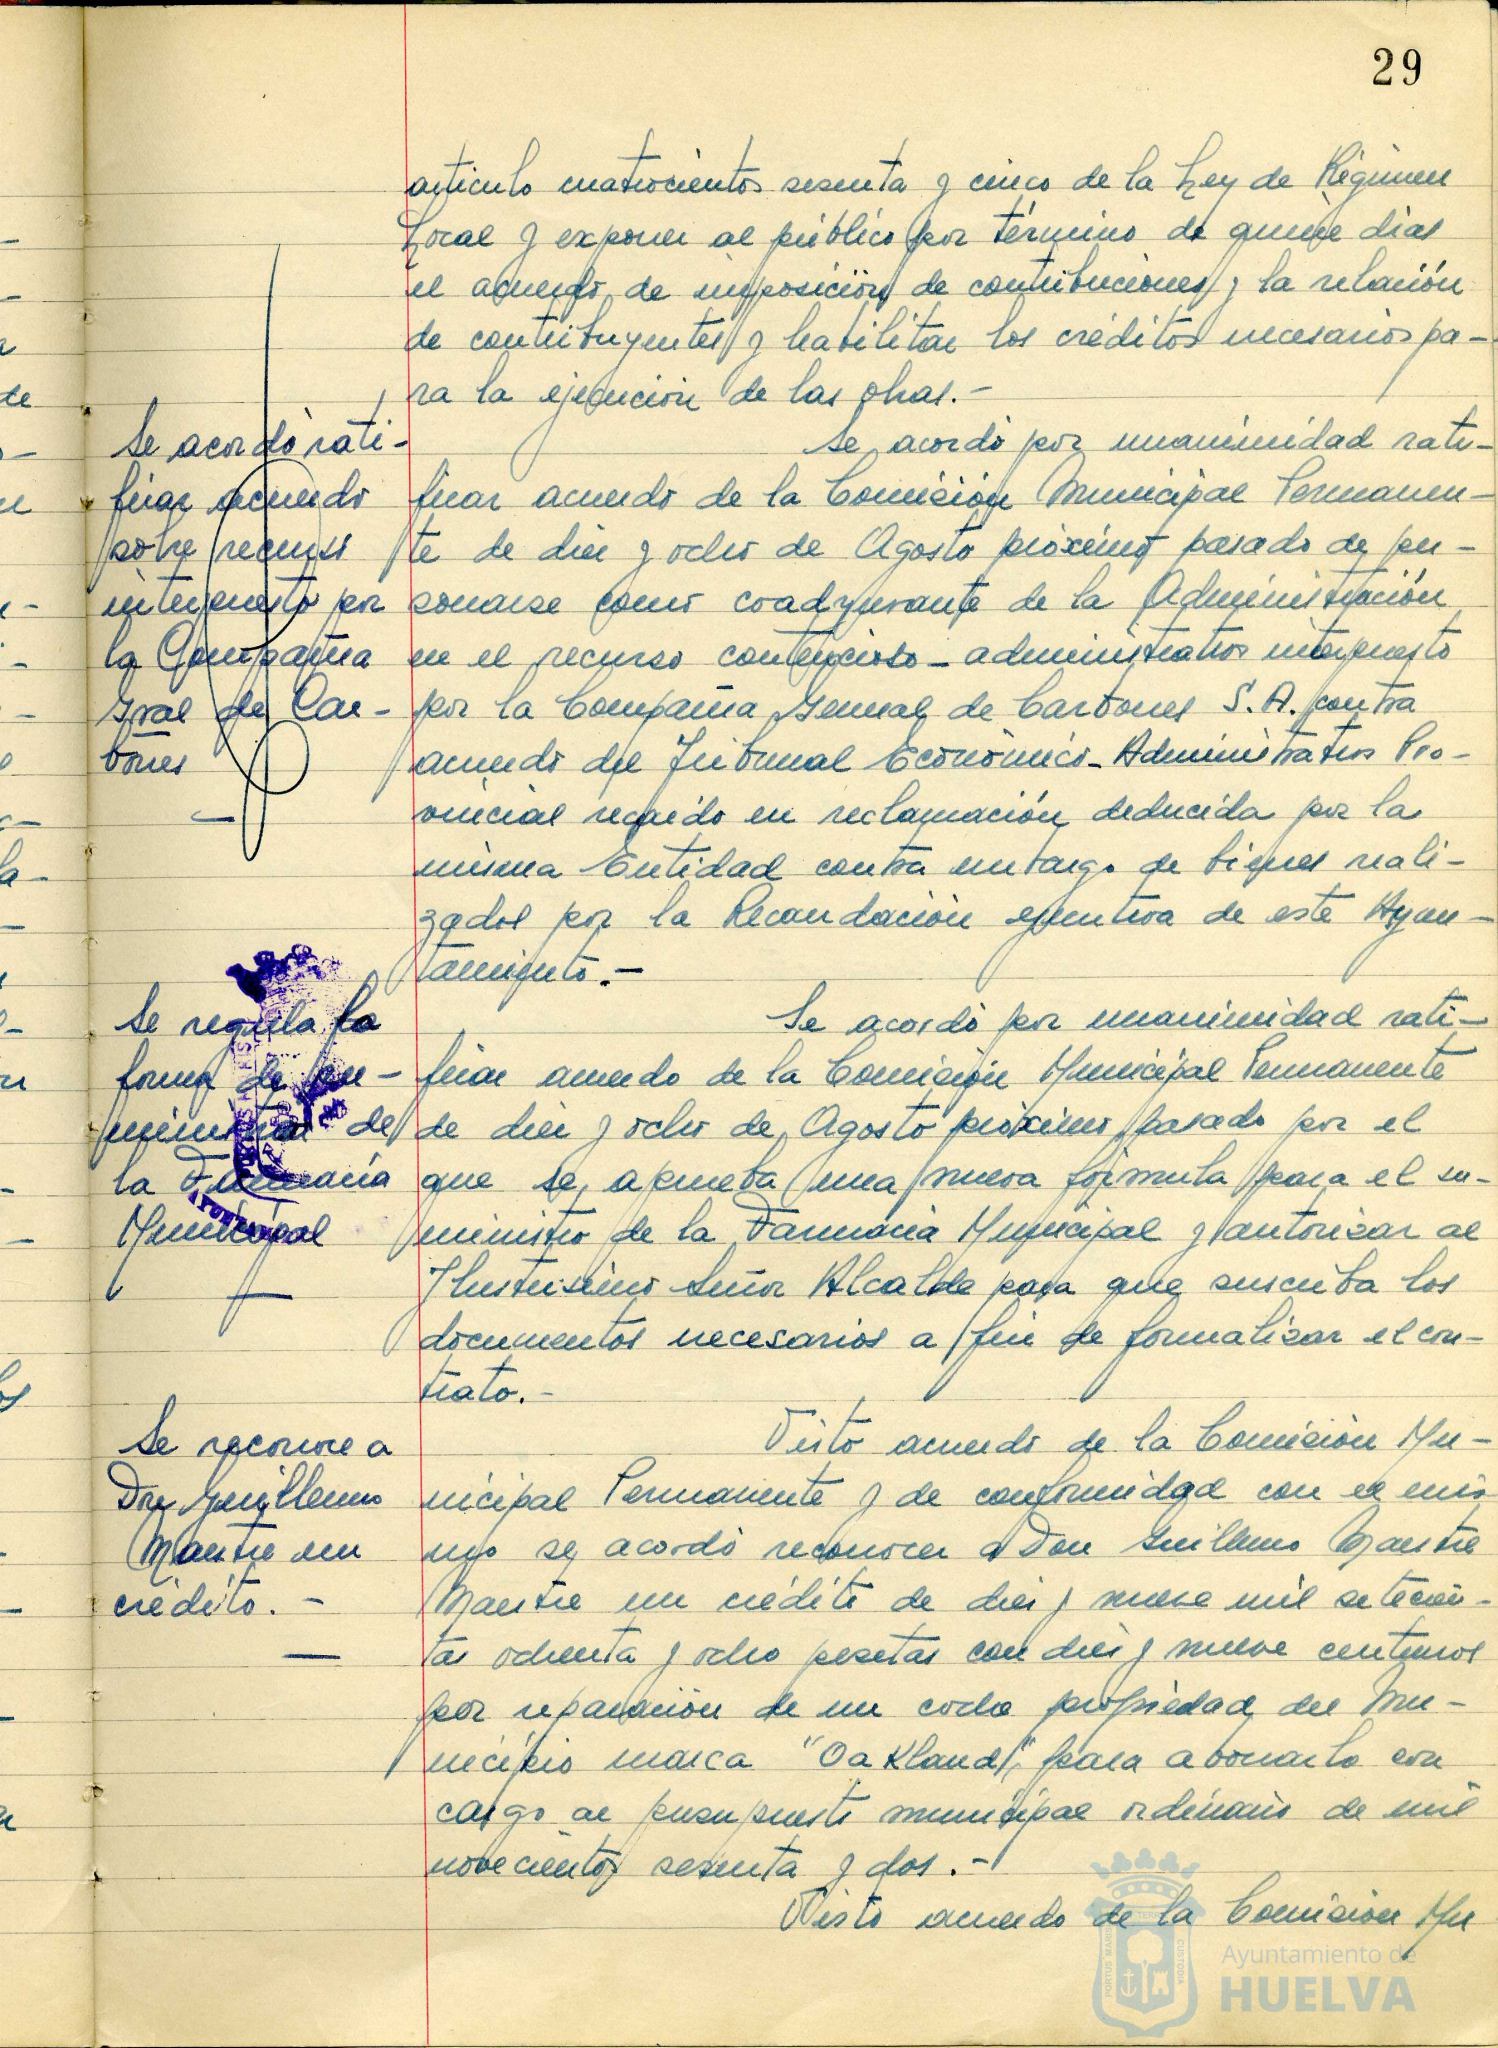 29
artículo cuatrocientos sesenta y cinco de la Ley de Régimen
Local y exponer al público por término de quince días
el acuerdo de imposición de contribuciones y la relación
de contribuyentes y habilitar los créditos necesarios pa-
ra la ejecución de las obras.-
Se acordó rati-
ficar acuerdo
sobre recurso
interpuesto por
la Compañia
Gral de Car-
bones
Se acordó por unanimidad rati-
ficar acuerdo de la Comisión Municipal Permanen-
te de diez y ocho de Agosto próximo pasado de per-
sonarse como coadyuvante de la Administración
en el recurso contencioso-administrativo interpuesto
por la Compañia General de Carbones S.A. contra
acuerdo del Tribunal Económico-Administrativo Pro-
vincial recaido en reclamación deducida por la
misma Entidad contra embargo de bienes reali-
zados por la Recaudación ejecutiva de este Ayun-
tamiento.-
Se regula la
forma de su-
ministrar de
la Farmacia
Municipal
Se acordó por unanimidad rati-
ficar acuerdo de la Comisión Municipal Permanente
de diez y ocho de Agosto próximo pasado por el
que se aprueba una nueva fórmula para el su-
ministro de la Farmacia Municipal y autorizar al
Ilustrisimo Señor Alcalde para que suscriba los
documentos necesarios a fin de formalizar el con-
trato.-
Se reconoce a
Don Guillermo
Maestre un
crédito.-
Visto acuerdo de la Comisión Mu-
nicipal Permanente y de conformidad con el mis
mo se acordó reconocer a Don Guillermo Maestre
Maestre un crédito de diez y nueve mil setecien-
tas ochenta y ocho pesetas con diez y nueve centimos
por reparación de un coche propiedad del Mu-
nicipio marca "Oakland", para abonarlo con
cargo al presupuesto municipal ordinario de mil
novecientos sesenta y dos.-
Visto acuerdo de la Comisión Mu
PORTUS MARIS
CUSTODIA
Ayuntamiento de
HUELVA